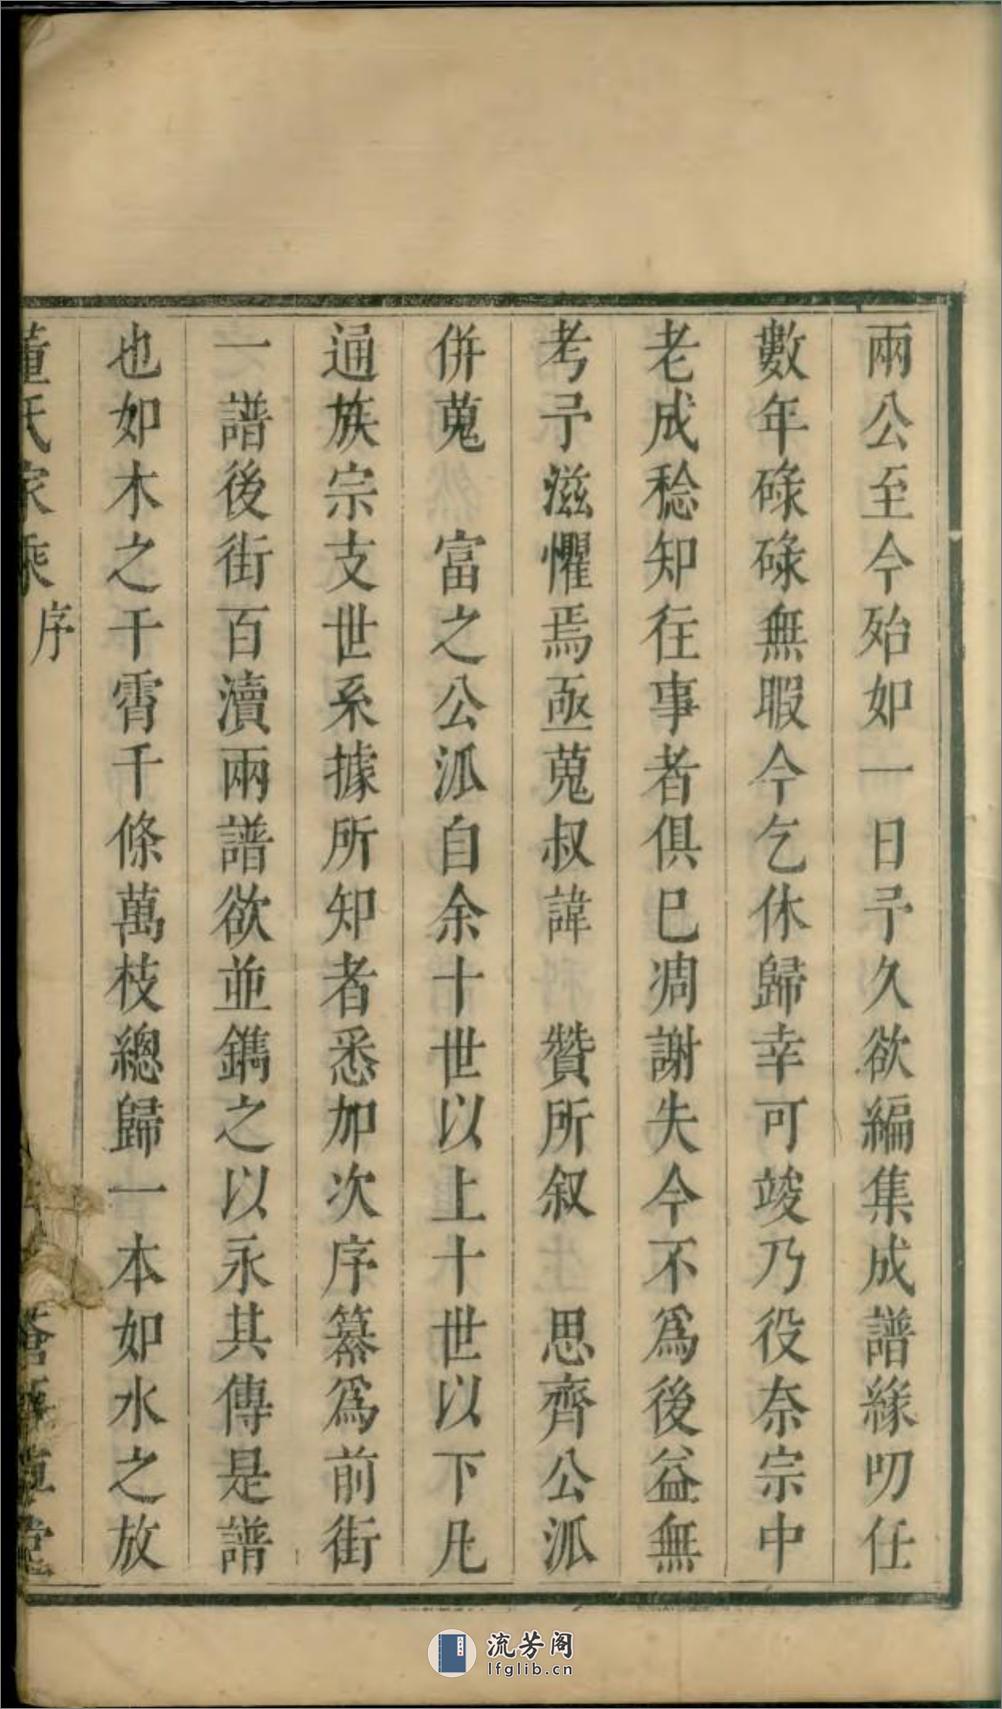 兩公至今殆如一日予久欲編集成譜緣叨任
數年碌碌無暇今乞休歸幸可竣乃役奈宗中
老成稔知往事者俱已凋謝失今不爲後益無
考予滋懼焉亟蒐叔諱 贊所叙 思齊公派
併蒐 富之公派自余十世以上十世以下凡
通族宗支世系據所知者悉加次序纂爲前街
一譜後街百瀆兩譜欲並鐫之以永其傳是譜
也如木之干霄千條萬枝總歸一本如水之放
董氏家乘 序
草堂
流芳阁
lfglib.cn